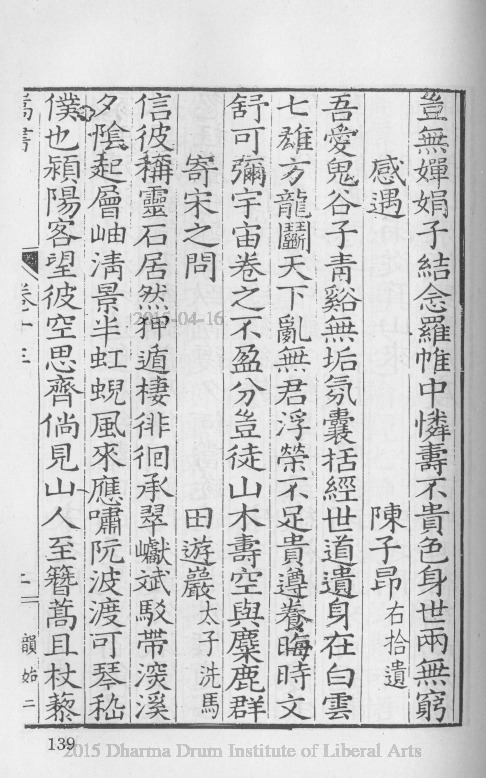 豈無嬋娟子結念羅帷中憐壽不貴色身世兩無窮
感遇 陳子昂右拾遺
吾愛鬼谷子青谿無垢氛囊括經世道遺身在白雲
七雄方龍鬬天下亂無君浮榮不足貴遵養晦時文
舒可彌宇宙卷之不盈分豈徒山木壽空與麋鹿群
寄宋之問 田遊巖太子洗馬
信彼稱靈石居然狎遁棲徘徊承翠巘斌駮帶深溪
夕陰起層岫清景半虹蜺風來應嘯阮波渡可琴嵇
僕也潁陽客望彼空思齊倘見山人至簪蒿且杖藜
嵩書 卷十三 二 韻始二
139
2015-04-16
2015 Dharma Drum Institute of Liberal Arts